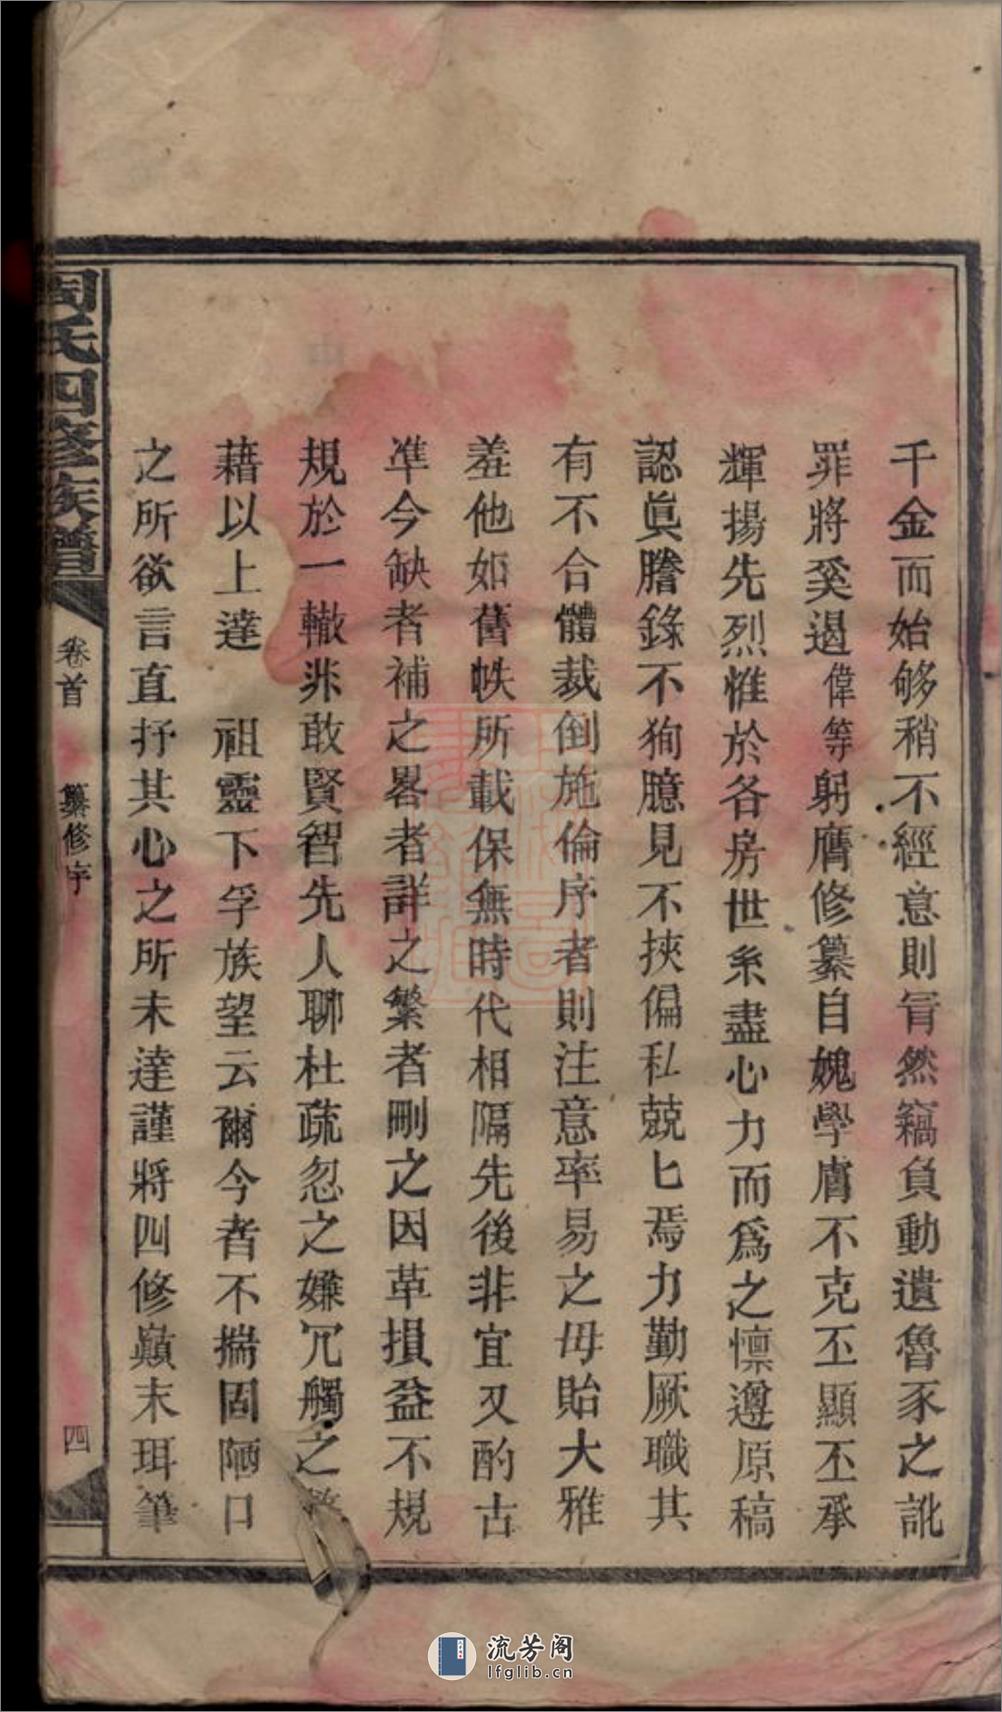 千金而始够稍不經意則肯然竊負動遺魯豕之訛
罪將奚逭偉等躬膺修纂自媿學膚不克丕顯丕承
輝揚先烈惟於各房世系盡心力而爲之懍遵原稿
認眞謄錄不狥臆見不挾偏私兢匕焉力勤厥職其
有不合體裁倒施倫序者則注意率易之毋貽大雅
羞他如舊帙所載保無時代相隔先後非宜又酌古
準今缺者補之畧者詳之繁者刪之因革損益不規
規於一轍非敢賢智先人聊杜疏忽之嫌冗觸之
藉以上達　祖靈下孚族望云爾今者不揣固陋口
之所欲言直抒其心之所未達謹將四修巔末珥筆
周氏四修族譜
卷首
纂修序
四
流芳阁
lfglib.cn